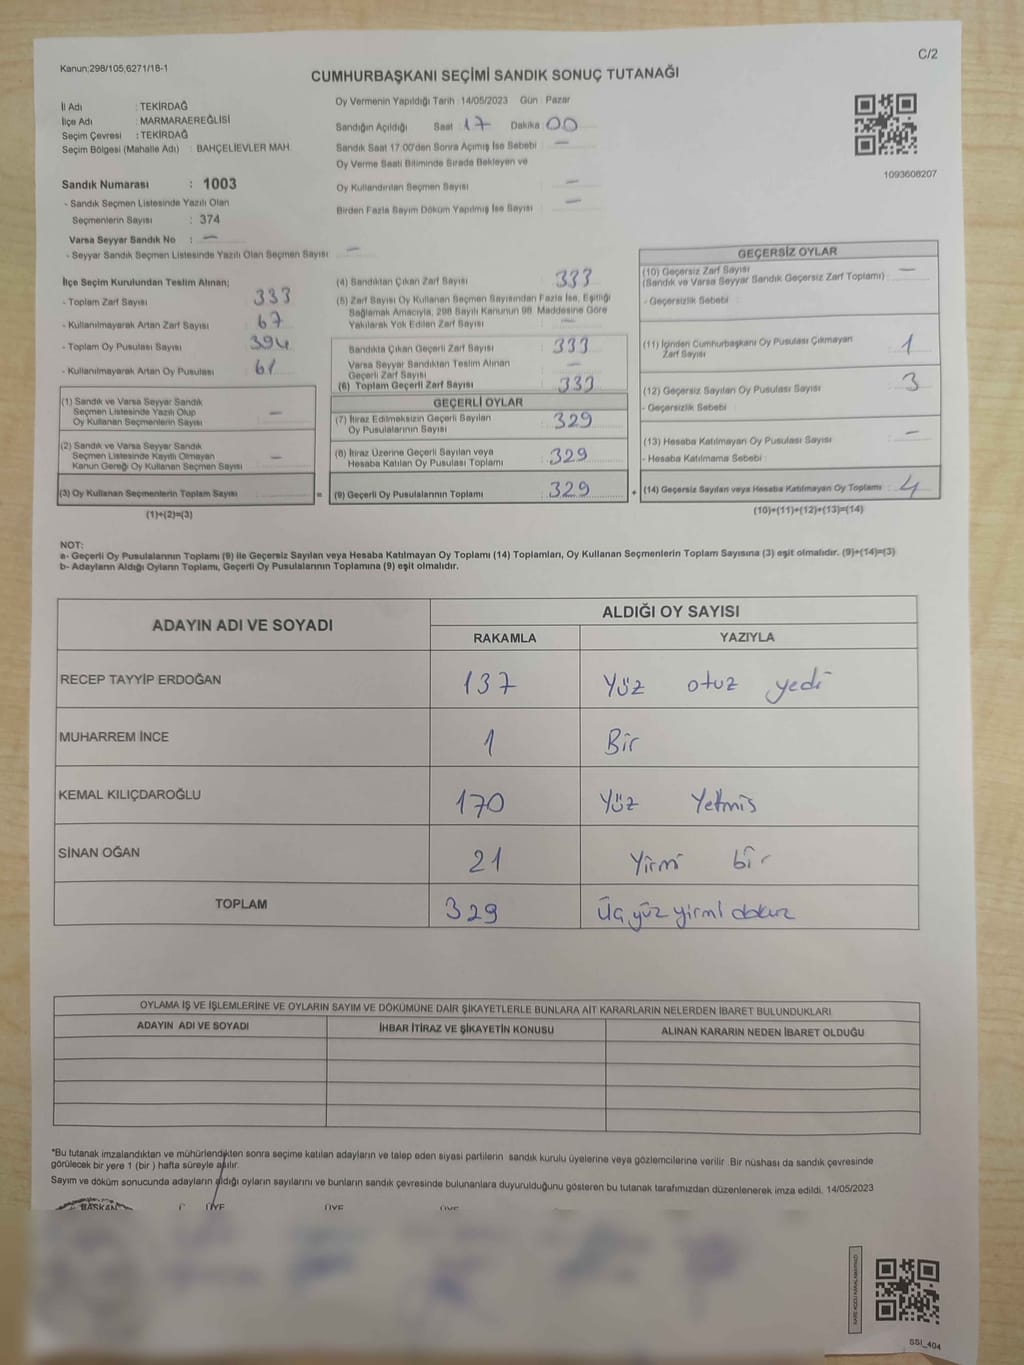 C/2
Kanun;298/105,6271/18-1
CUMHURBAŞKANI SEÇİMİ SANDIK SONUÇ TUTANAĞI
İl Adı : TEKİRDAĞ
İlçe Adı : MARMARAEREĞLİSİ
Seçim Çevresi : TEKİRDAĞ
Seçim Bölgesi (Mahalle Adı) : BAHÇELİEVLER MAH
Oy Vermenin Yapıldığı Tarih : 14/05/2023 Gün : Pazar
Sandığın Açıldığı Saat : 17 Dakika : 00
Sandık Saat 17:00'den Sonra Açımış İse Sebebi : —
Oy Verme Saati Bitiminde Sırada Bekleyen ve
Oy Kullandırılan Seçmen Sayısı : —
Birden Fazla Sayım Döküm Yapılmış İse Sayısı : —
1093608207
Sandık Numarası : 1003
- Sandık Seçmen Listesinde Yazılı Olan
Seçmenlerin Sayısı : 374
Varsa Seyyar Sandık No : —
- Seyyar Sandık Seçmen Listesinde Yazılı Olan Seçmen Sayısı : —
İlçe Seçim Kurulundan Teslim Alınan;
- Toplam Zarf Sayısı : 333
- Kullanılmayarak Artan Zarf Sayısı : 67
- Toplam Oy Pusulası Sayısı : 394
- Kullanılmayarak Artan Oy Pusulası : 61
(1) Sandık ve Varsa Seyyar Sandık
Seçmen Listesinde Yazılı Olup
Oy Kullanan Seçmenlerin Sayısı : —
(2) Sandık ve Varsa Seyyar Sandık
Seçmen Listesinde Kayıtlı Olmayan
Kanun Gereği Oy Kullanan Seçmen Sayısı : —
(3) Oy Kullanan Seçmenlerin Toplam Sayısı :
(1)+(2)=(3)
(4) Sandıktan Çıkan Zarf Sayısı : 333
(5) Zarf Sayısı Oy Kullanan Seçmen Sayısından Fazla İse, Eşitliği
Sağlamak Amacıyla, 298 Sayılı Kanunun 98. Maddesine Göre
Yakılarak Yok Edilen Zarf Sayısı : —
Sandıkta Çıkan Geçerli Zarf Sayısı : 333
Varsa Seyyar Sandıktan Teslim Alınan
Geçerli Zarf Sayısı : —
(6) Toplam Geçerli Zarf Sayısı : 333
GEÇERLİ OYLAR
(7) İtiraz Edilmeksizin Geçerli Sayılan
Oy Pusulalarının Sayısı : 329
(8) İtiraz Üzerine Geçerli Sayılan veya
Hesaba Katılan Oy Pusulası Toplamı : 329
= (9) Geçerli Oy Pusulalarının Toplamı : 329
GEÇERSİZ OYLAR
(10) Geçersiz Zarf Sayısı
(Sandık ve Varsa Seyyar Sandık Geçersiz Zarf Toplamı) : —
- Geçersizlik Sebebi :
(11) İçinden Cumhurbaşkanı Oy Pusulası Çıkmayan
Zarf Sayısı : 1
(12) Geçersiz Sayılan Oy Pusulası Sayısı : 3
- Geçersizlik Sebebi :
(13) Hesaba Katılmayan Oy Pusulası Sayısı : —
- Hesaba Katılmama Sebebi :
+ (14) Geçersiz Sayılan veya Hesaba Katılmayan Oy Toplamı : 4
(10)+(11)+(12)+(13)=(14)
NOT:
a- Geçerli Oy Pusulalarının Toplamı (9) ile Geçersiz Sayılan veya Hesaba Katılmayan Oy Toplamı (14) Toplamları, Oy Kullanan Seçmenlerin Toplam Sayısına (3) eşit olmalıdır. (9)+(14)=(3)
b- Adayların Aldığı Oyların Toplamı, Geçerli Oy Pusulalarının Toplamına (9) eşit olmalıdır.
ADAYIN ADI VE SOYADI ALDIĞI OY SAYISI
RAKAMLA YAZIYLA
RECEP TAYYİP ERDOĞAN 137 Yüz otuz yedi
MUHARREM İNCE 1 Bir
KEMAL KILIÇDAROĞLU 170 Yüz Yetmiş
SİNAN OĞAN 21 Yirmi bir
TOPLAM 329 Üç yüz yirmi dokuz
OYLAMA İŞ VE İŞLEMLERİNE VE OYLARIN SAYIM VE DÖKÜMÜNE DAİR ŞİKAYETLERLE BUNLARA AİT KARARLARIN NELERDEN İBARET BULUNDUKLARI
ADAYIN ADI VE SOYADI İHBAR İTİRAZ VE ŞİKAYETİN KONUSU ALINAN KARARIN NEDEN İBARET OLDUĞU
*Bu tutanak imzalandıktan ve mühürlendikten sonra seçime katılan adayların ve talep eden siyasi partilerin sandık kurulu üyelerine veya gözlemcilerine verilir. Bir nüshası da sandık çevresinde
görülecek bir yere 1 (bir ) hafta süreyle asılır.
Sayım ve döküm sonucunda adayların aldığı oyların sayılarını ve bunların sandık çevresinde bulunanlara duyurulduğunu gösteren bu tutanak tarafımızdan düzenlenerek imza edildi. 14/05/2023
BAŞKAN ÜYE ÜYE ÜYE
SSİ_404